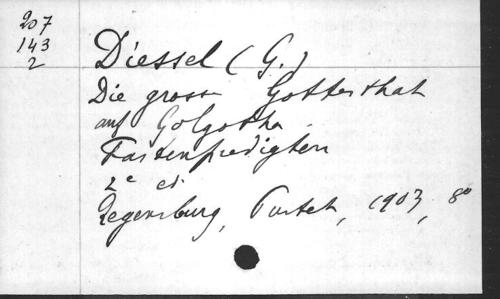 207
143
2
Diessel (G.)
Die grosse Gottesthat
auf Golgotha
Fastenpredigten
2e ed
Regensburg, Pustet, 1903, 8o